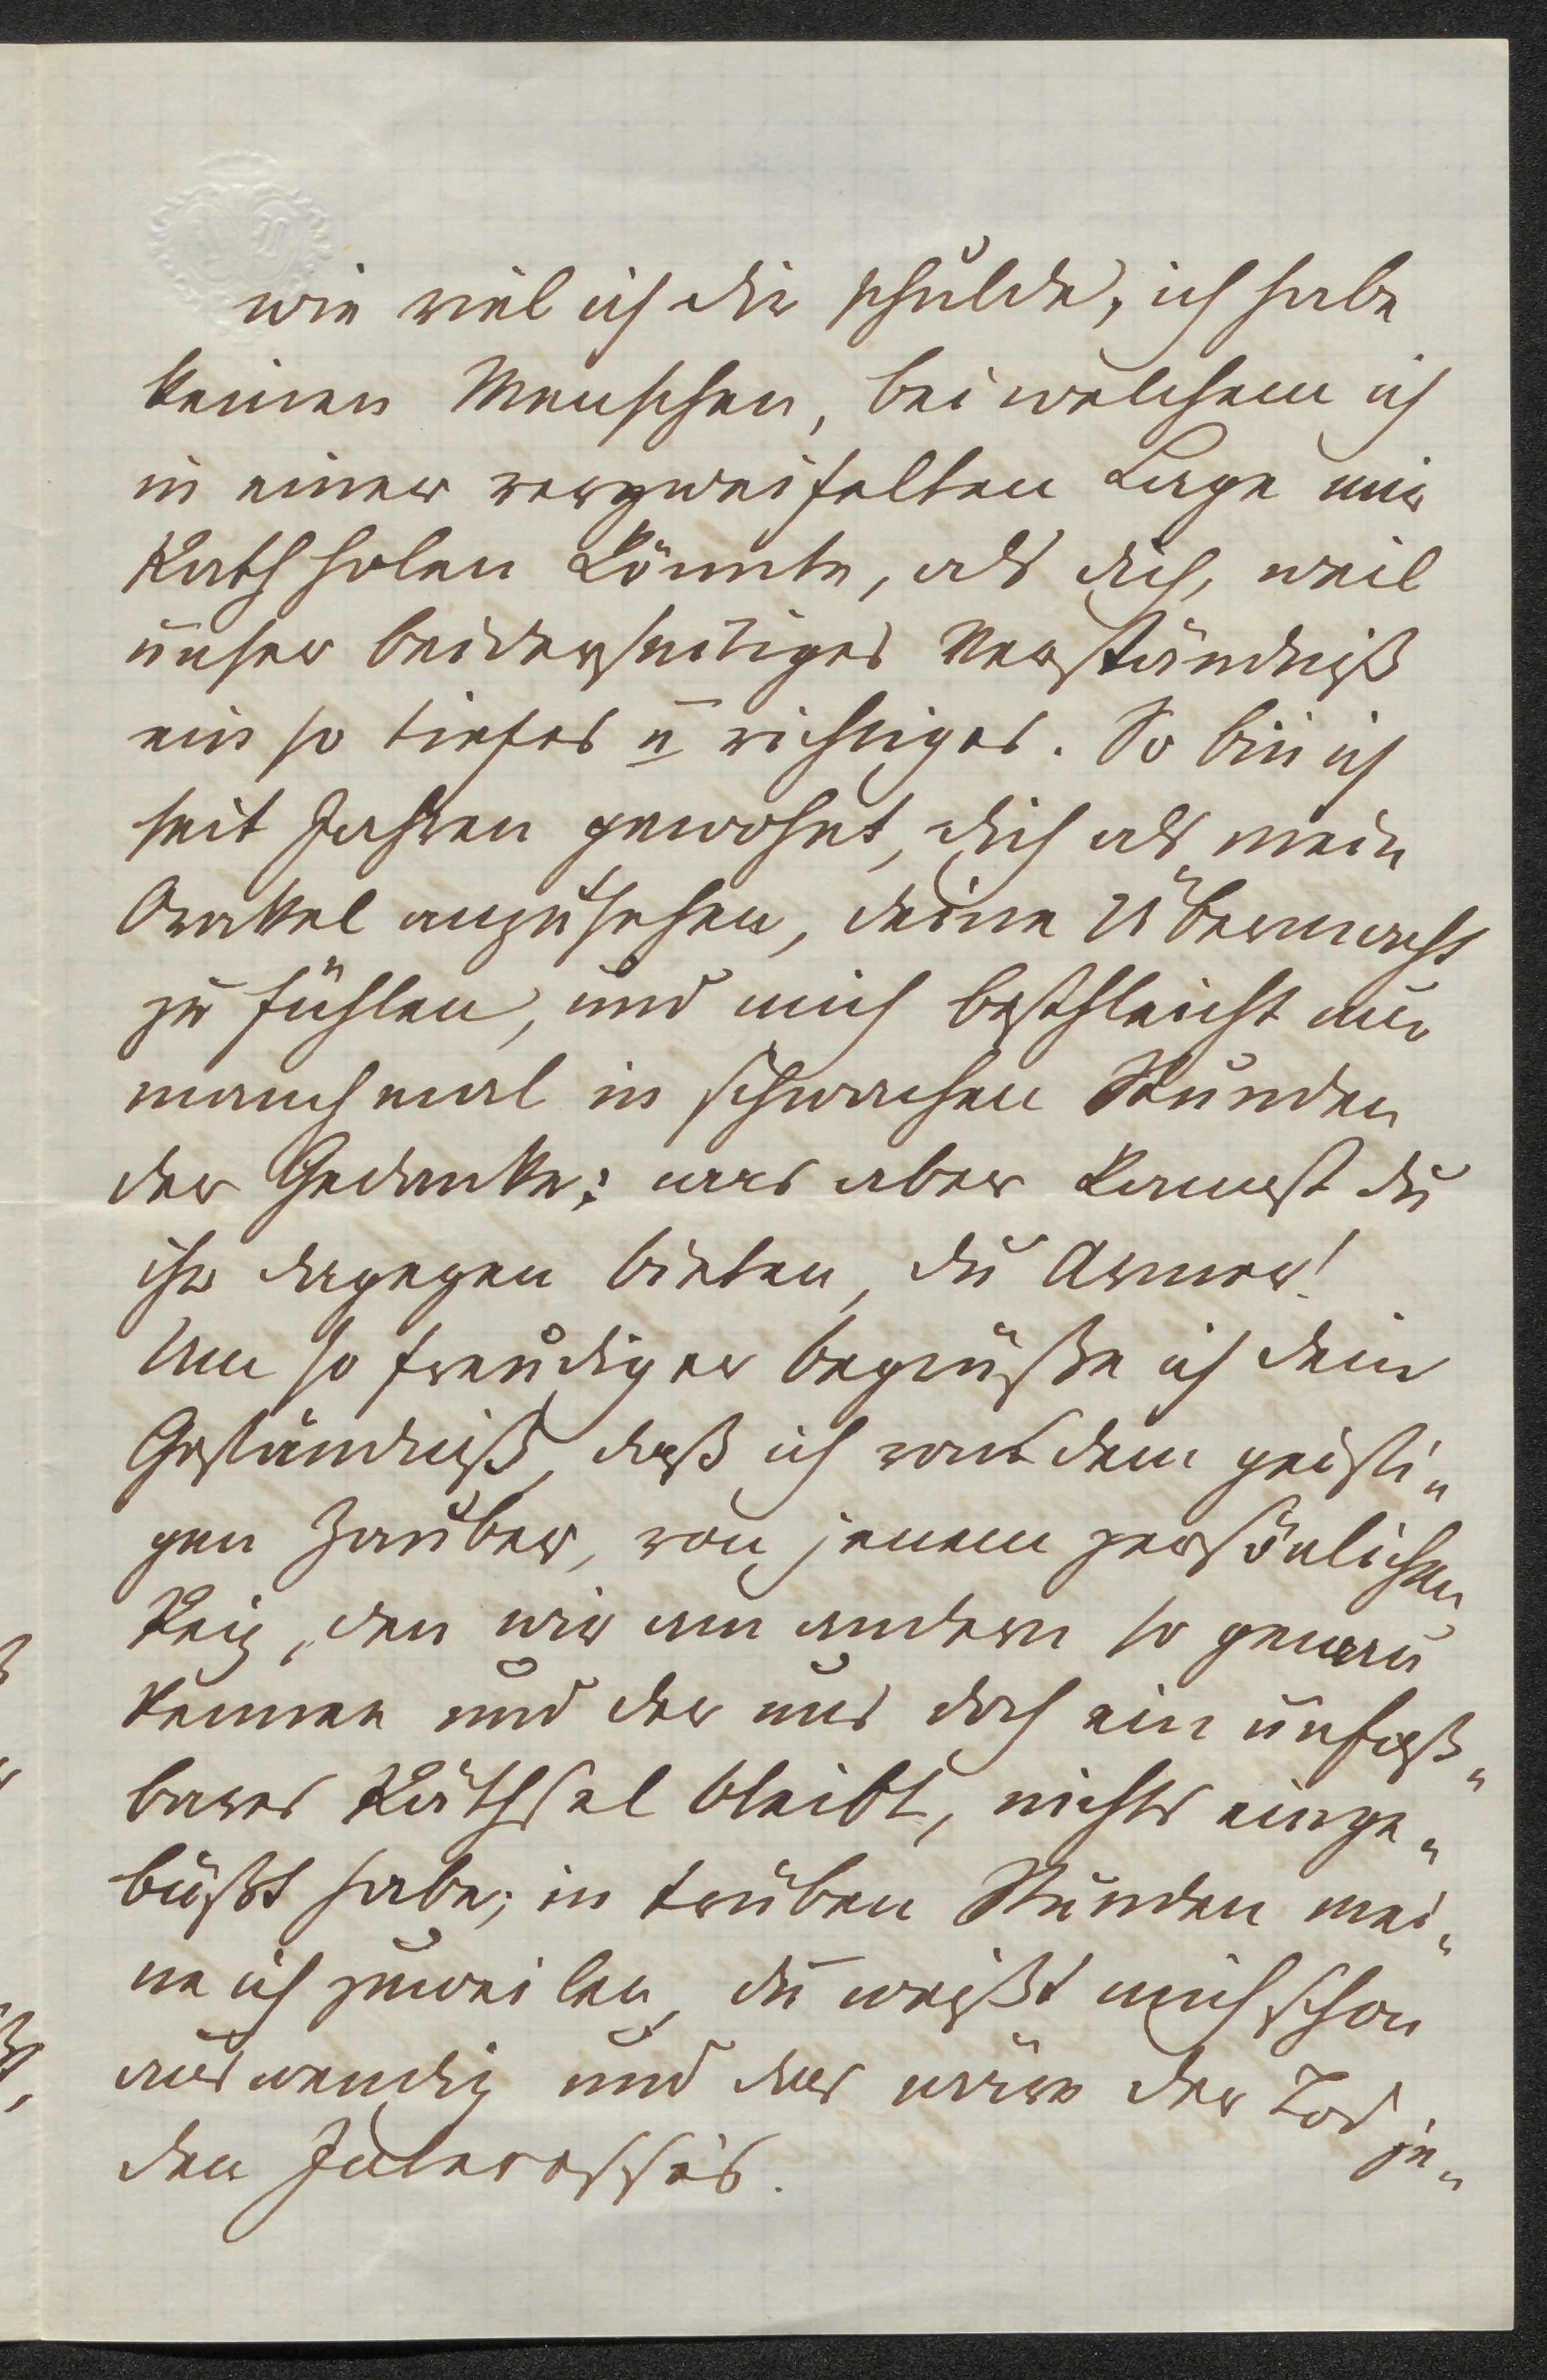 wie viel ich dir schulde, ich habe
keinen Menschen, bei welchem ich
in einer verzweifelten Lage mir
Rath holen könnte, als dich, weil
unser beiderseitiges Verständniß
ein so tiefes u richtiges. So bin ich
seit Jahren gewohnt, dich als mein
Orakel anzusehen, deine Übermacht
zu fühlen, und mich beschleicht nur
manchmal in schwachen Stunden
der Gedanke: was aber kannst du
ihr dagegen bieten, du Armer!
Um so freudiger begrüße ich dein
Geständniß, daß ich von dem geisti„
gen Zauber, von jenem persönlichen
Reiz, den wir am andern so genau
kennen und der uns doch ein unfaß„
bares Räthsel bleibt, nichts einge„
büßt habe; in trüben Stunden mei„
ne ich zuweilen, du weißt mich schon
auswendig und das wäre der Tod je„
den Interesses.